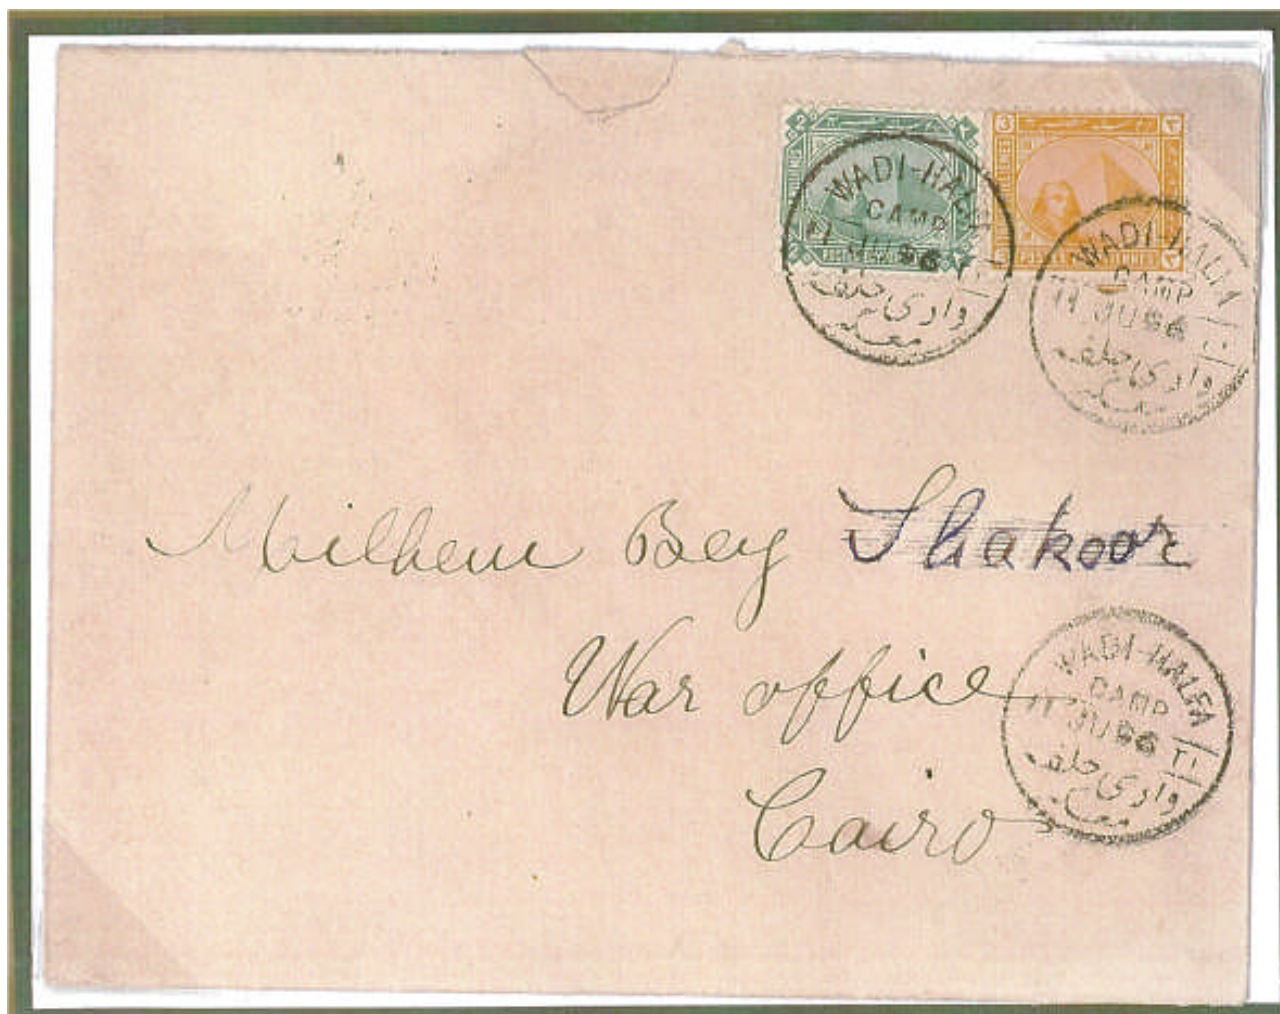 2 ٢ 3 ٣
WADI-HALFA
CAMP
11 JU 96
وادى حلفه
معسكر
WADI-HALFA
CAMP
11 JU 96
وادى حلفه
معسكر
Milhem Bey Shakoor
War office
Cairo
WADI-HALFA
CAMP
11 JU 96
وادى حلفه
معسكر